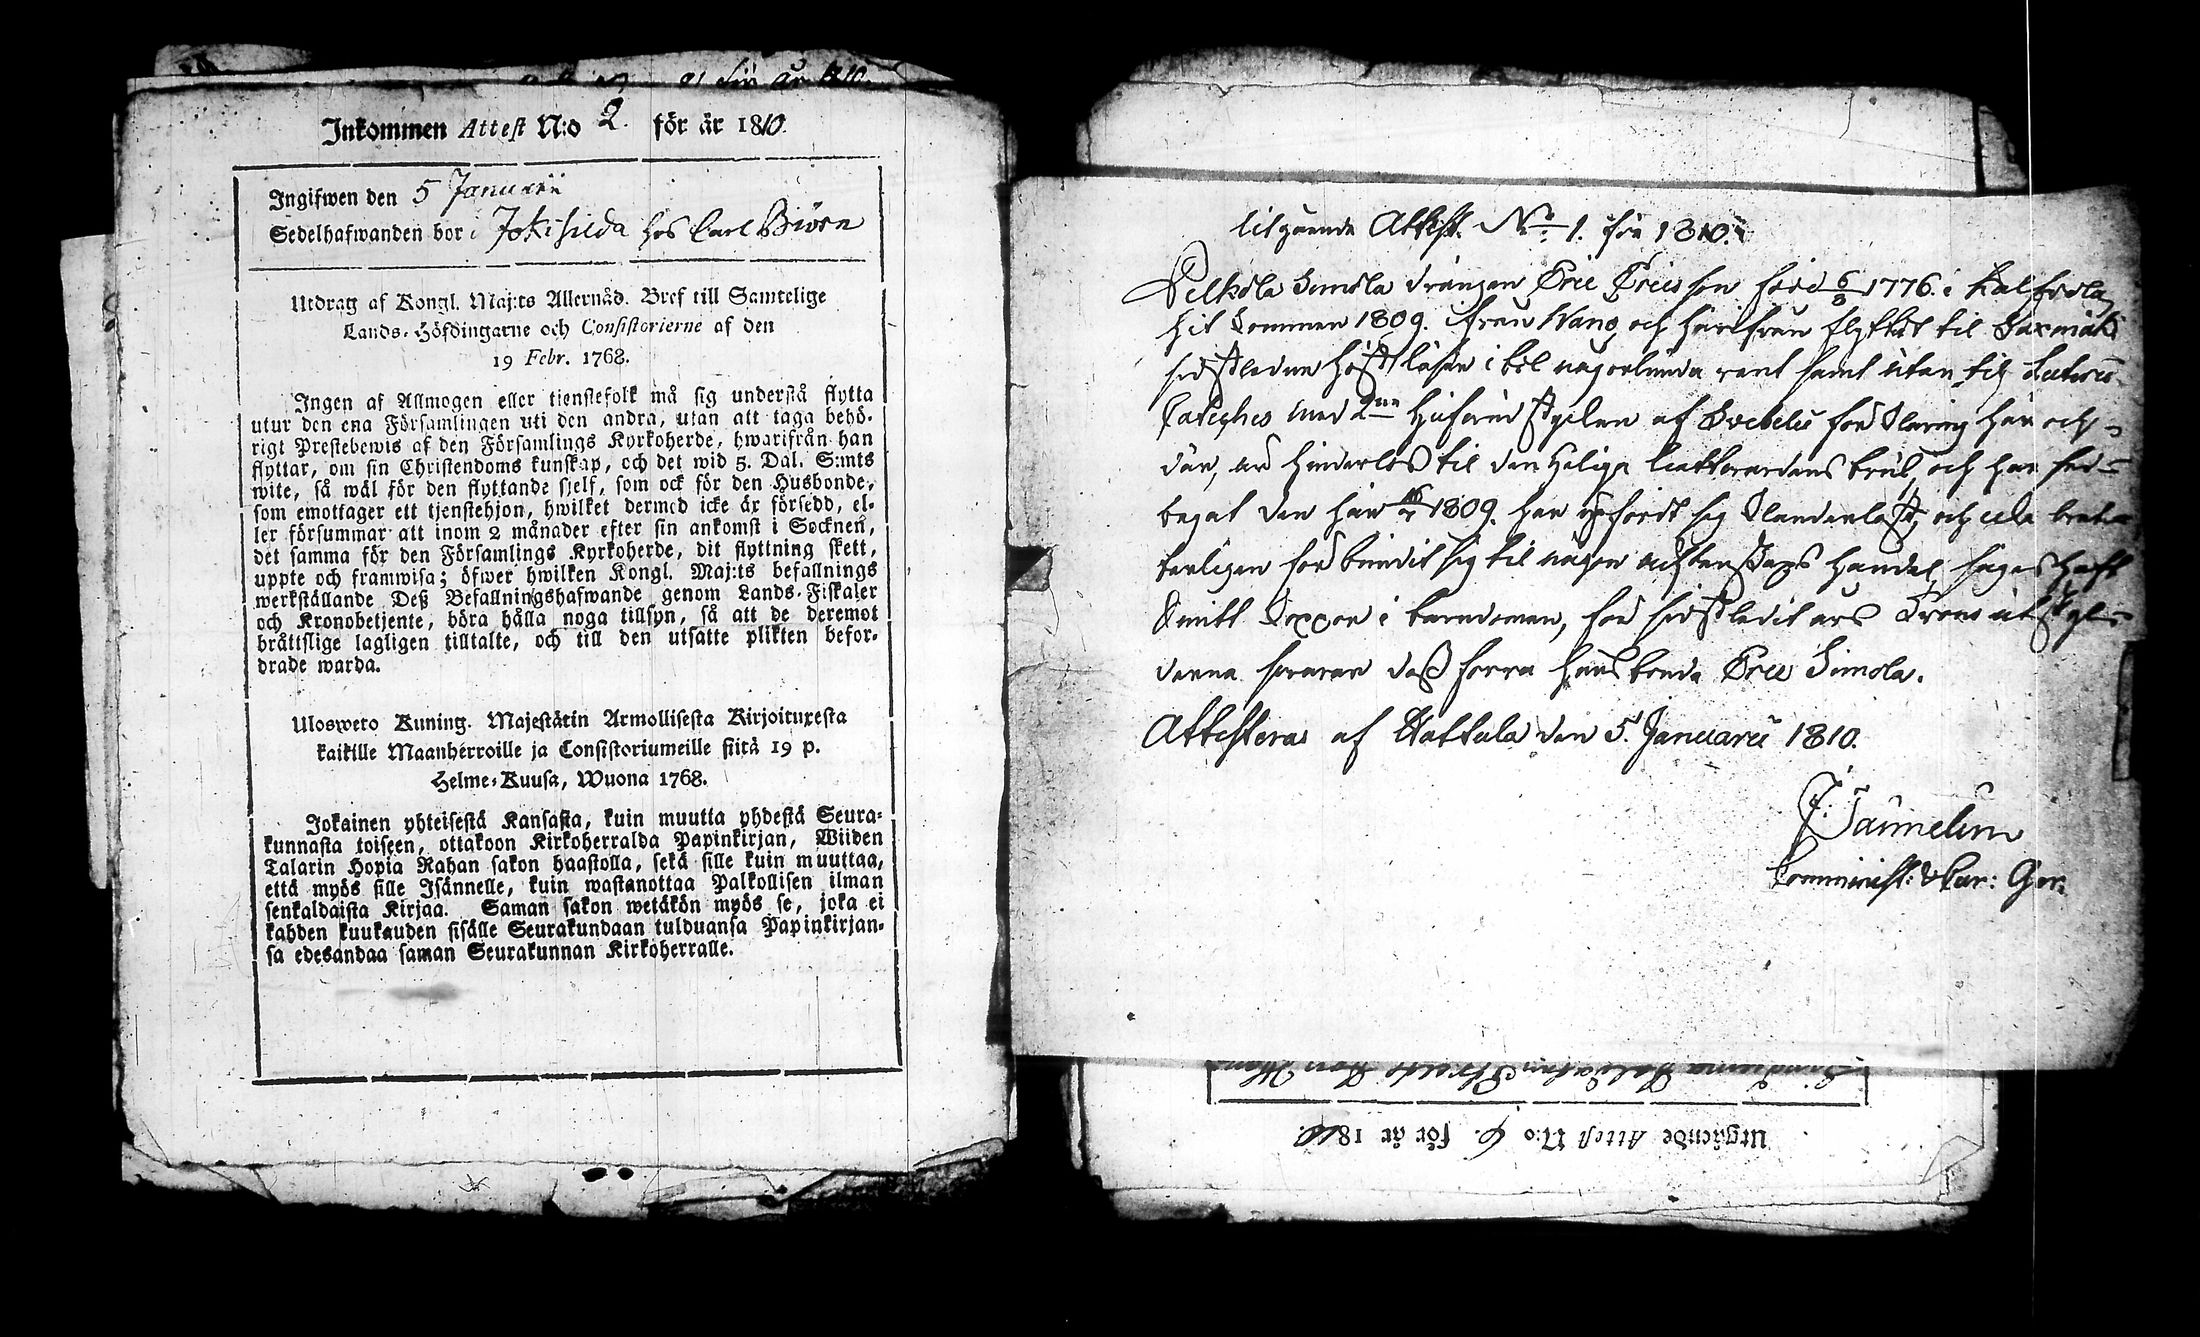 Inkommen Attest N:o 2. för år 1810.
Ingifwen den 5 Januarii
Sedelhafwanden bor i Jokisilda hos Carl Biörn
Utdrag af Kongl. Maj:ts Allernåd. Bref till Samtelige
Lands-Höfdingarne och Consistorierne af den
19 Febr. 1768.
Ingen af Allmogen eller tienstefolk må sig understå flytta
utur den ena Församlingen uti den andra, utan att taga behö-
rigt Prestebewis af den Församlings Kyrkoherde, hwarifrån han
flyttar, om sin Christendoms kunskap, och det wid 5. Dal. S:mts
wite, så wäl för den flyttande sjelf, som ock för den Husbonde,
som emottager ett tjenstehjon, hwilket dermed icke är försedd, el-
ler försummar att inom 2 månader efter sin ankomst i Socknen,
det samma för den Församlings Kyrkoherde, dit flyttning skett,
uppte och framwisa; öfwer hwilken Kongl. Maj:ts befallnings
werkställande Deß Befallningshafwande genom Lands-Fiskaler
och Kronobetjente, böra hålla noga tillsyn, så att de deremot
bråttslige lagligen tilltalte, och till den utsatte plikten befor-
drade warda.
Ulosweto Kuning. Majestätin Armollisesta Kirjoituxesta
kaikille Maanherroille ja Consistoriumeille siitä 19 p.
Helme-Kuusa, Wuona 1768.
Jokainen yhteisestä Kansasta, kuin muutta yhdestä Seura-
kunnasta toiseen, ottakoon Kirkoherralda Papinkirjan, Wiiden
Talarin Hopia Rahan sakon haastolla, sekä sille kuin muuttaa,
että myös sille Isännelle, kuin wastanottaa Palkollisen ilman
senkaldaista Kirjaa. Saman sakon wetäkön myös se, joka ei
kahden kuukauden sisälle Seurakundaan tulduansa Papinkirjan-
sa edesandaa saman Seurakunnan Kirkoherralle.
Utgående Attest. No 1. för 1810.
Pelkola Simola drängen Eric Ericsson född 6/8 1776. i Kalfvola
hit kommen 1809. ifrån Wano och härifrån flyttat til Saxmäki
sidstledne höst läser i bok någorlunda rent samt utan til Lutheri
Cateches med 2ne Hufvud stycken af Svebelii förklaring här och
där, är hinderlös til den Heliga Nattvardens bruk, och har sed
begat den här 1809. har upfördt sig klanderlöst, och icke
förbundit sig til någon ächtenskaps handel, säges haft
Smitt koppor i barndomen, för sidstledit års Crono utskyl-
derna svarar dess förra husbonde Eric Simola.
Attesteras af Hattula den 5. Januarii 1810.
J: Taumelin
Comminist: & Cur: Ger:
Utgående Attest N:o 6. för år 1810.